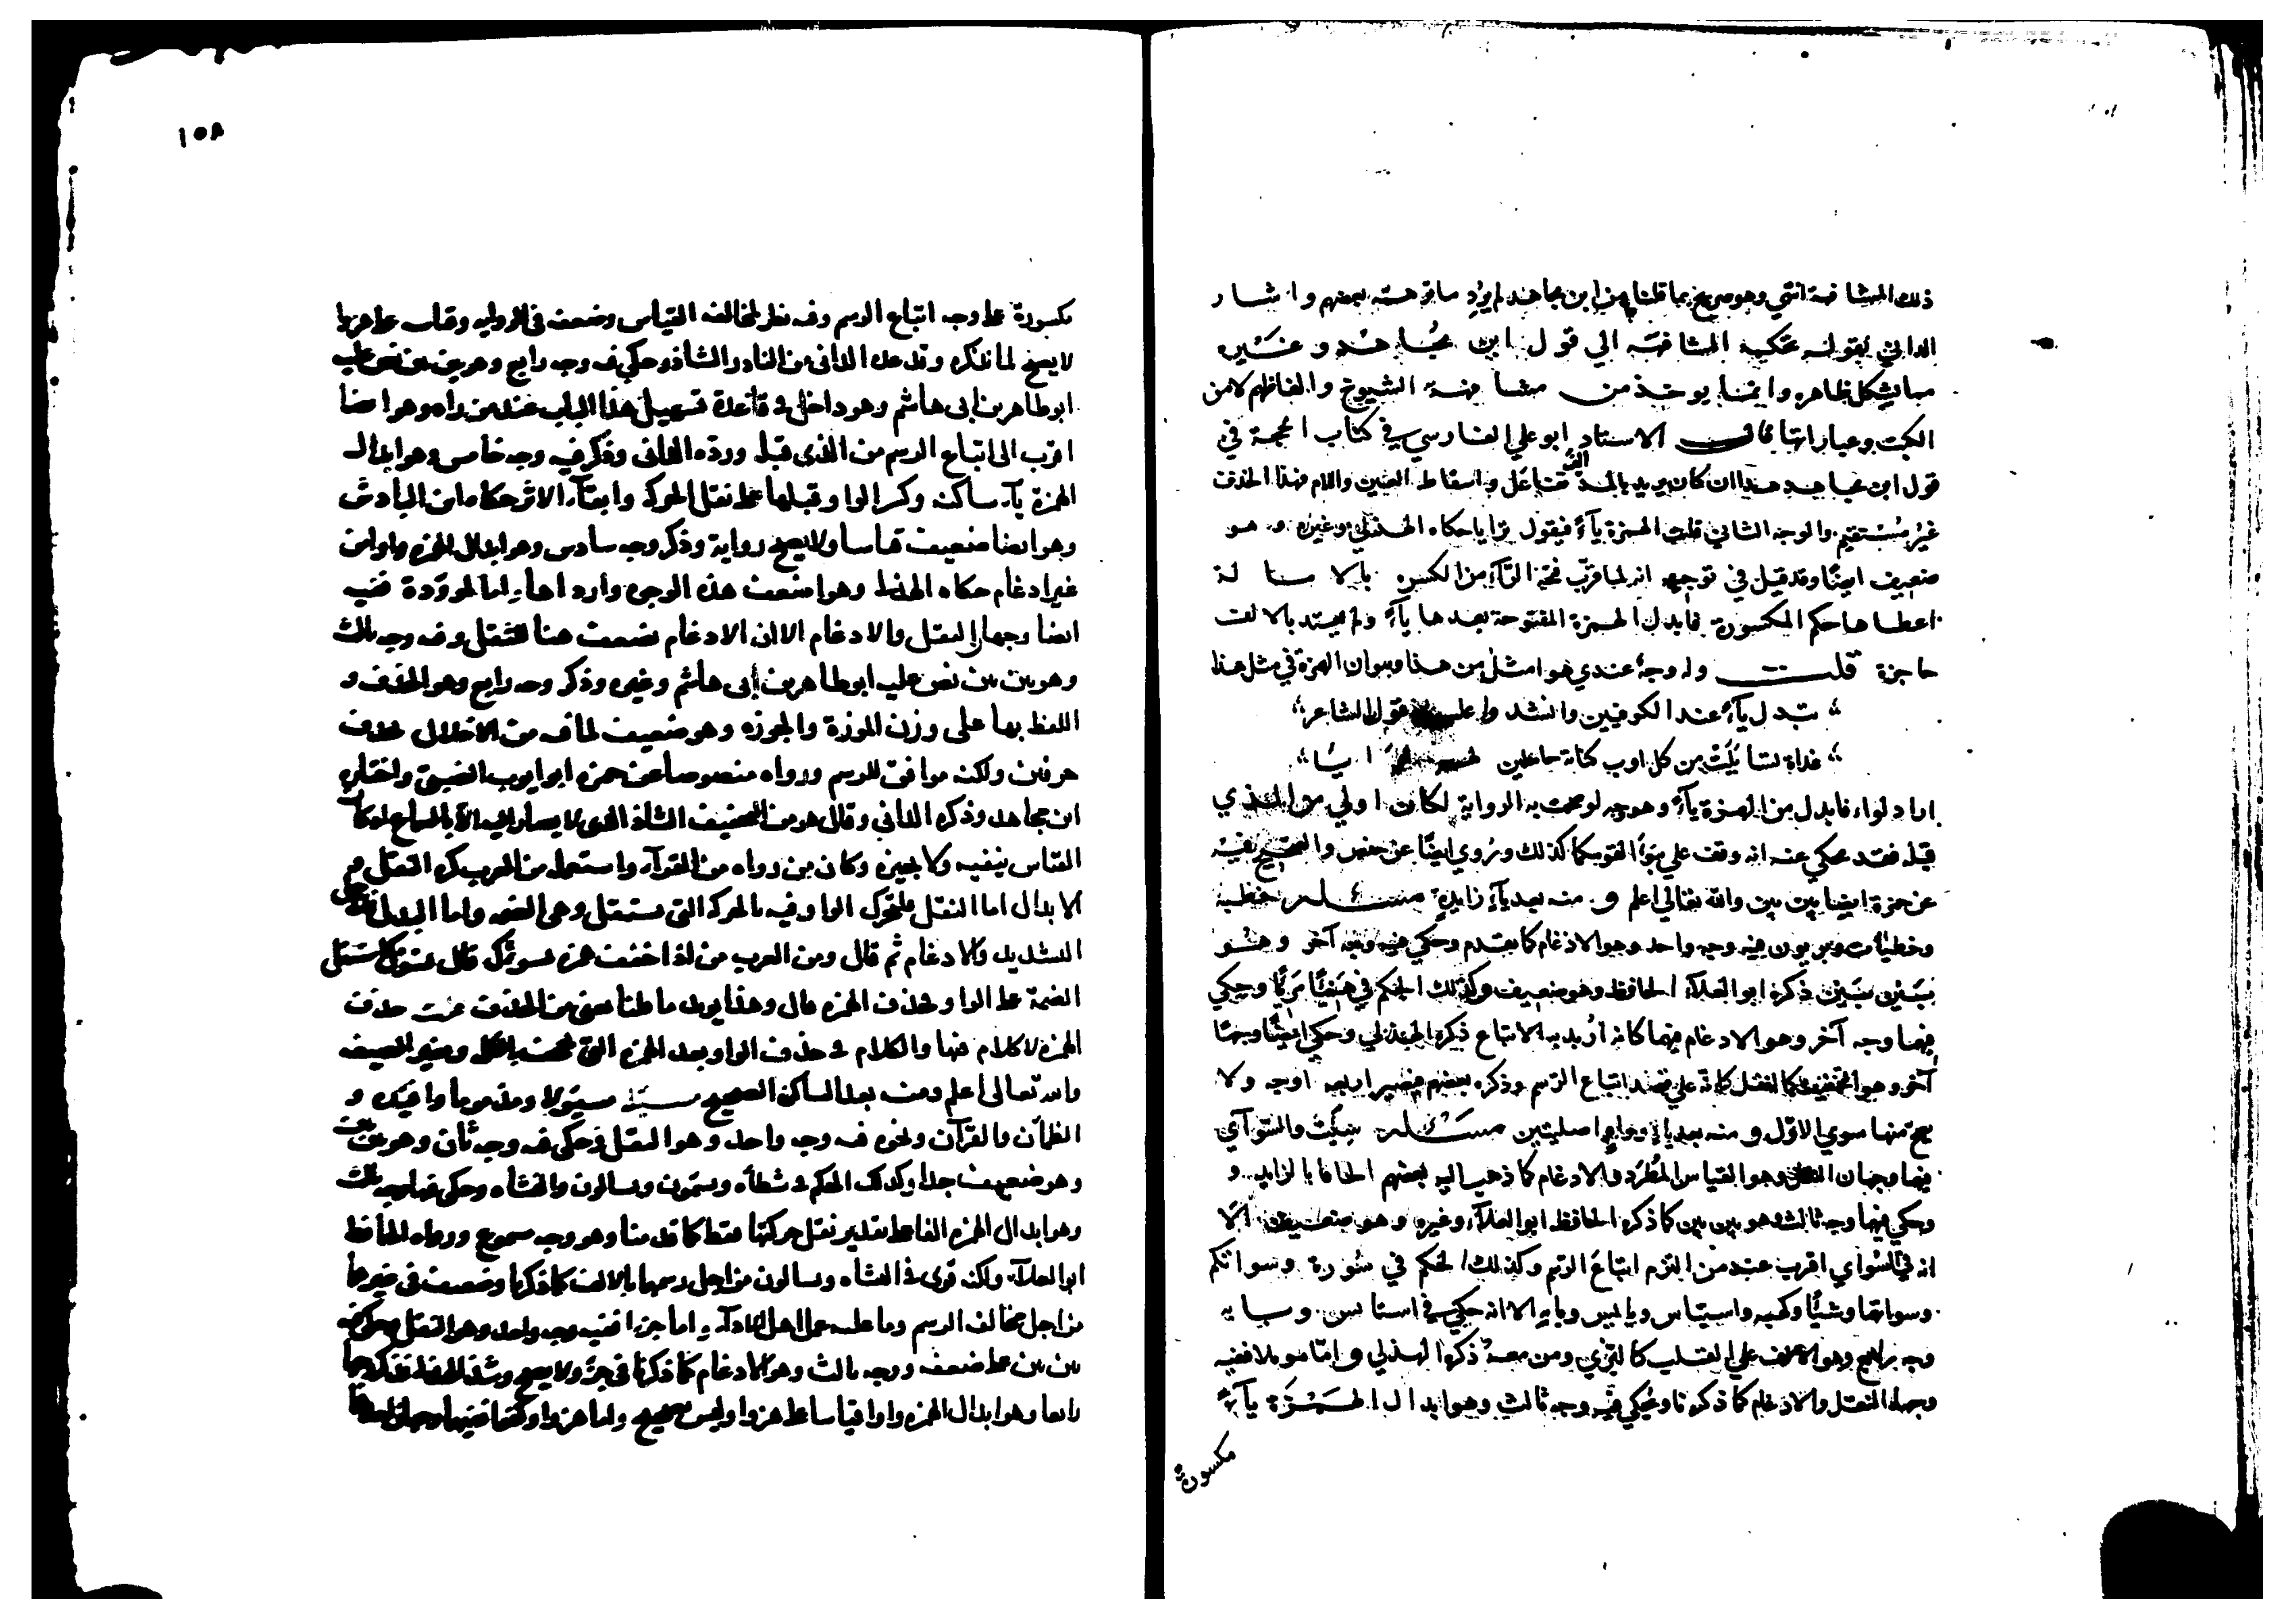 ذلك المشافهة انتهى وهو صريح بما قلناه من ابن مجاهد لم يرد ما توهمه بعضهم واشار
الداني بقوله تحكيه المشافهة الي قول ابن مجاهد وغيره
مما يشكل ظاهره وانما يوخذ من مشافهة الشيوخ والفاظهم لا من
الكتب وعباراتها قال الاستاد ابو علي الفارسي في كتاب الحجة في
قول ابن مجاهد هذا ان كان يريد بالمد الف تفاعل واسقاط العين واللام فهذا الحذف
غير مستقيم والوجه الثاني قلب الهمزة ياء فيقول ترايا حكاه الهذلي وغيره وهو
ضعيف ايضا وقد قيل في توجيهه انه لما قرب فتحة الراء من الكسرة بالامالة
اعطاها حكم المكسورة فابدل الهمزة المفتوحة بعدها ياء ولم يعتد بالالف
حاجزة قلت وله وجه عندي هو امثل من هذا وهو ان الهمزة في مثل هذا
تبدل ياء عند الكوفيين وانشدوا عليه قول الشاعر
غداة تسايلت من كل اوب كنانة حاملين لهم لوايا
اراد لواء فابدل من الهمزة ياء وهو وجه لو صحت به الرواية لكان اولي من الذي
قبله فقد حكي عنه انه وقف علي تبوأ لقومكما كذلك وروي ايضا عن حفص والصحيح فيه
عن حمزة ايضا بين بين والله تعالي اعلم ومنه بعد ياء زايدة مسئلة خطية
وخطيات وبريون فيه وجه واحد وهو الادغام كما تقدم وحكي فيه وجه آخر وهو
بين بين ذكره ابو العلاء الحافظ وهو ضعيف وكذلك الحكم في هنيئا مريئا وحكي
فيهما وجه آخر وهو الادغام فيهما كانه اريد به الاتباع ذكره الهذلي وحكي ايضا وجها
آخر وهو التخفيف كالنقل كانه علي قصد اتباع الرسم وذكره بعضهم فيصير اربعة اوجه ولا
يصح منها سوي الاول ومنه بعد ياء وواو اصليتين مسئلة سيئت والسوآي
فيها وجهان النقل وهو القياس المطرد والادغام كما ذهب اليه بعضهم الحاقا بالزايد و
وحكي فيها وجه ثالث وهو بين بين كما ذكره الحافظ ابو العلاء وغيره وهو ضعيف الا
انه في السوآي اقرب عند من التزم اتباع الرسم وكذلك الحكم في سورة وسوآتكم
وسوآتها وشيئا وكهيئة واستياس ويائيس وبابه الا انه حكي في استايس وبابه
وجه رابع وهو الالف علي القلب كالبزي ومن معه ذكره الهذلي واما موئلا ففيه
وجهان النقل والادغام كما ذكرنا وحكي فيه وجه ثالث وهو ابدال الهمزة ياء
مكسورة
١٥٨
مكسورة على وجه اتباع الرسم وفيه نظر لمخالفة القياس وضعف في الرواية وقياسه على هزوا
لا يصح لما نذكره وقد عده الداني من النادر والشاذ وحكي فيه وجه رابع وهو بين بين نص عليه
ابو طاهر بن ابي هاشم وهو داخل في قاعدة تسهيل هذا الباب عند من رآه وهو ايضا
اقرب الى اتباع الرسم من الذي قبله ورده الداني وذكر فيه وجه خامس وهو ابدال
الهمزة ياء ساكنة وكسر الواو قبلها على نقل الحركة وابقاء الاثر حكاه ابن الباذش
وهو ايضا ضعيف قياسا ولا يصح رواية وذكر وجه سادس وهو ابدال الهمزة واوا من
غير ادغام حكاه الهذلي وهو اضعف هذه الوجوه واردأها واما الموؤدة ففيه
ايضا وجهان النقل والادغام الا ان الادغام يضعف هنا للثقل وفيه وجه ثالث
وهو بين بين نص عليه ابو طاهر بن ابي هاشم وغيره وذكر وجه رابع وهو الحذف و
اللفظ بها على وزن الموزة والجوزة وهو ضعيف لما فيه من الاخلال بحذف
حرفين ولكنه موافق للرسم ورواه منصوصا عن حمزة ابو ايوب الضبي واختاره
ابن مجاهد وذكره الداني وقال هو من التخفيف الشاذ الذي لا يصار اليه الا بالسماع اذ كان
القياس ينفيه ولا يجيزه وكان من رواه من القراء واستعمله من العرب كره النقل و
الابدال اما النقل فلتحرك الواو فيه بالحركة التي تستثقل وهي الضمة واما البدل فلاجل
التشديد والادغام ثم قال ومن العرب من اذا خفف همزة يسوئك قال يسوك استثقل
الضمة على الواو فحذف الهمزة قال وهذا يويد ما قلناه من الحذف
الهمزة لا كلام فيها والكلام في حذف الواو بعد الهمزة التي
والله تعالى اعلم ومنه بعد الساكن الصحيح مسئلة مسئولا ومذءوما وافئدة و
الظمآن والقرآن ونحوه فيه وجه واحد وهو النقل وحكي فيه وجه ثان وهو بين بين
وهو ضعيف جدا وكذلك الحكم في شطأه ويسئمون ويسألون والنشأة وحكي فيها وجه ثالث
وهو ابدال الهمزة الفا على تقدير نقل حركتها فقط كما قدمنا وهو وجه مسموع ورواه الحافظ
ابو العلاء ولكنه قوي في النشأة ويسألون من اجل رسمهما بالالف كما ذكرنا وضعيف في غيرهما
من اجل مخالفة الرسم وما عليه عمل اهل الاداء واما جزءا ففيه وجه واحد وهو النقل وحكي فيه
بين بين على ضعفه ووجه ثالث وهو الادغام كما ذكرنا في جزء ولا يصح وشذ الهذلي فذكر وجها
رابعا وهو ابدال الهمزة واوا قياسا على هزوا وليس بصحيح واما هزوا وكفوا ففيهما وجهان احدهما